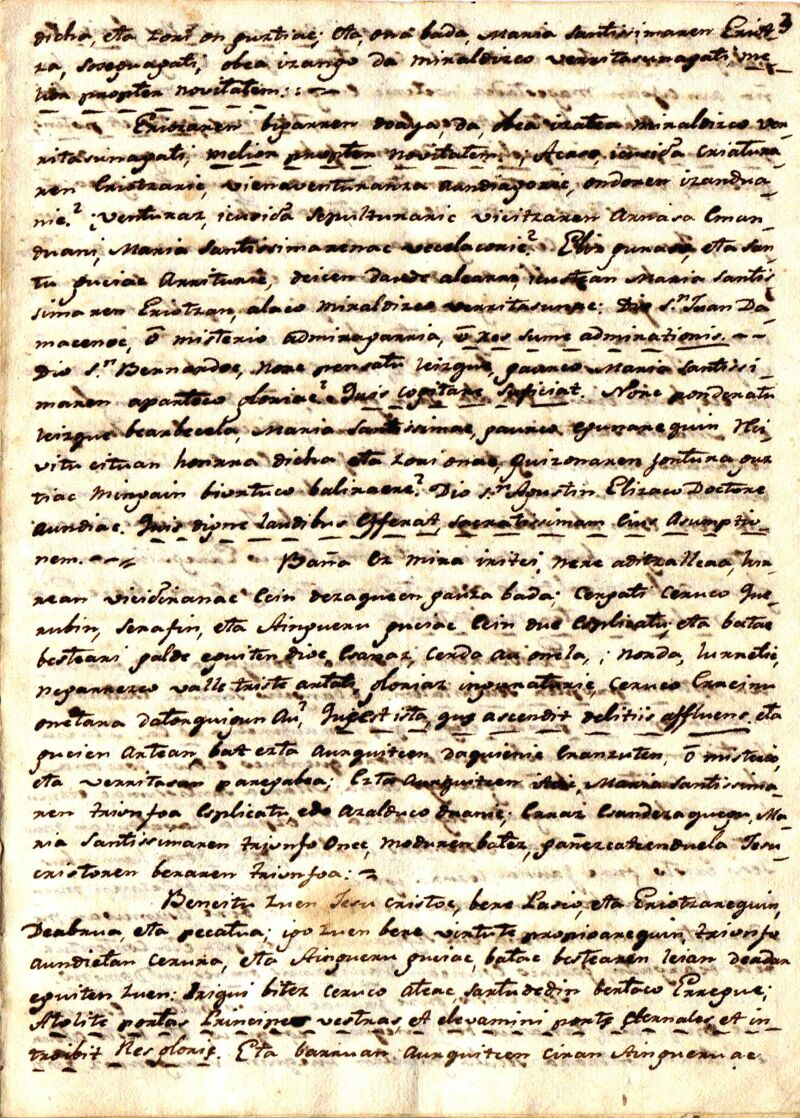 3
dicha, eta zori on guztiac; eta, ona bada, Maria Santissimaren Eriotza,
za, soseguagati, obea izango da miraldizco verritasunagati, me-
lior propter novitatem: :~
Eriozaren bigarren doaya, da, obea izatea miraldizco ver-
ritasunagati; melior propter novitatem.; Acaso, icusi da criatura-
ren Eriotzaric, vienaventuranza aundiagoric, ondoren izandua-
nic? ¿venturaz, icusi da sepulturaric vicitzaren arnasa eman-
duani, Maria Santissimarenac vecelacoric? Eliz guraso, eta San-
tu guciac arrituric, deicen diode alcarri, icustean Maria Santis-
simaren Eriotzan, alaco miraldizco verritasunac: Dio S.n Joan Da-
macenoc, ō misterio admiragarria, ō res sume admirationis. ~ ~
Dio S.n Bernardoc, Norc pensatu leizque, gaurco Maria Santissi-
maren aparatoco gloriac? Quis cogitare suficiat. Norc ponderatu
leizque bearbecela, Maria Santissimac, gaurco egunarequin
vitu cituan honrra dicha eta zorionac, guizonaren
tiac mingain biurtuco balirare? Dio S.n Agustin Elizaco Doctore
aundiac. Quis digne laudibus efferat, sacratissimam eius Asumptio-
nem. ~ ~ Baña ez mira iritci, nere aditzalleac, lur-
rean vici diranac cein dezaqueen gauza bada; cergati ceruco Que-
rubin, Serafin, eta Aingueru guciac ecin due esplicatu, eta batac
besteari galde eguiten dioe, esanaz, cerda au onela,; norda, lurretic,
negarrezco valle triste artati, gloriaz inguraturic, ceruco
onetara datorquigun au? Que est ista, que ascendit delitiis affluens. eta
gucien artean bat ezta aurquitcen daquienic eranzuten, ō misterio,
eta verritasan paregabea; Ezta aurquitcen Maria Santissima-
ren triunfoa esplicatu, edo azalduco duanic. Esandezaquegu, Ma-
ria Santissimaren triunfo onec, moduren batez, gañezcatcenduela Jesu
cristoren beraren triunfoa: ~
Bencitu zuen Jesu Cristoc, bere Pasio, eta Eriotzarequin,
Deabrua eta pecatua; igo zuen bere virtute propioarequin, triunfo
aundietan cerura, eta Aingueru guciac, batac bestearen leian deadar
eguiten zuen: Iriqui bitez ceruco ateac, sartu dedin bertaco Erregue;
Atolite portas Principes vestras, et elevamini porte eternales et in-
troibit Rex glorie. Eta barruan aurquitcen ciran Aingueruac